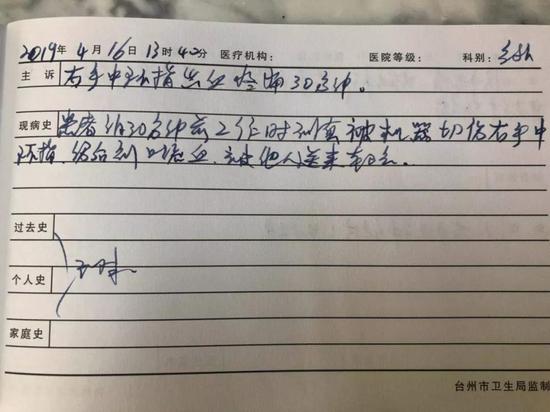 2019年4月16日13时42分 医疗机构： 医院等级： 科别：
主诉 右手中环指出血疼痛30分钟。
现病史 患者约30分钟前工作时不慎被机器切伤右手中
环指，伤后 出血，被他人送来
过去史
个人史
家庭史
台州市卫生局监制